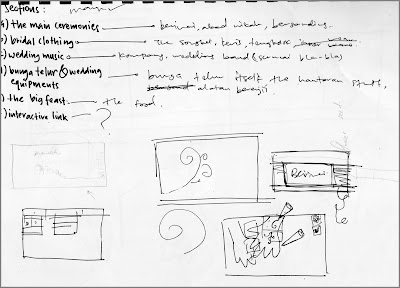 Sections:
a) the main ceremonies → berinai, akad nikah, bersanding.
b) bridal clothing → the songket, keris, tengkolok,
c) wedding music → kompang, wedding band (semi bla-bla)
d) bunga telur & wedding equipments → bunga telur itself, the hantaran stuffs, alatan berinai.
e) the big feast. → the food.
f) interactive link → ?
Berinai